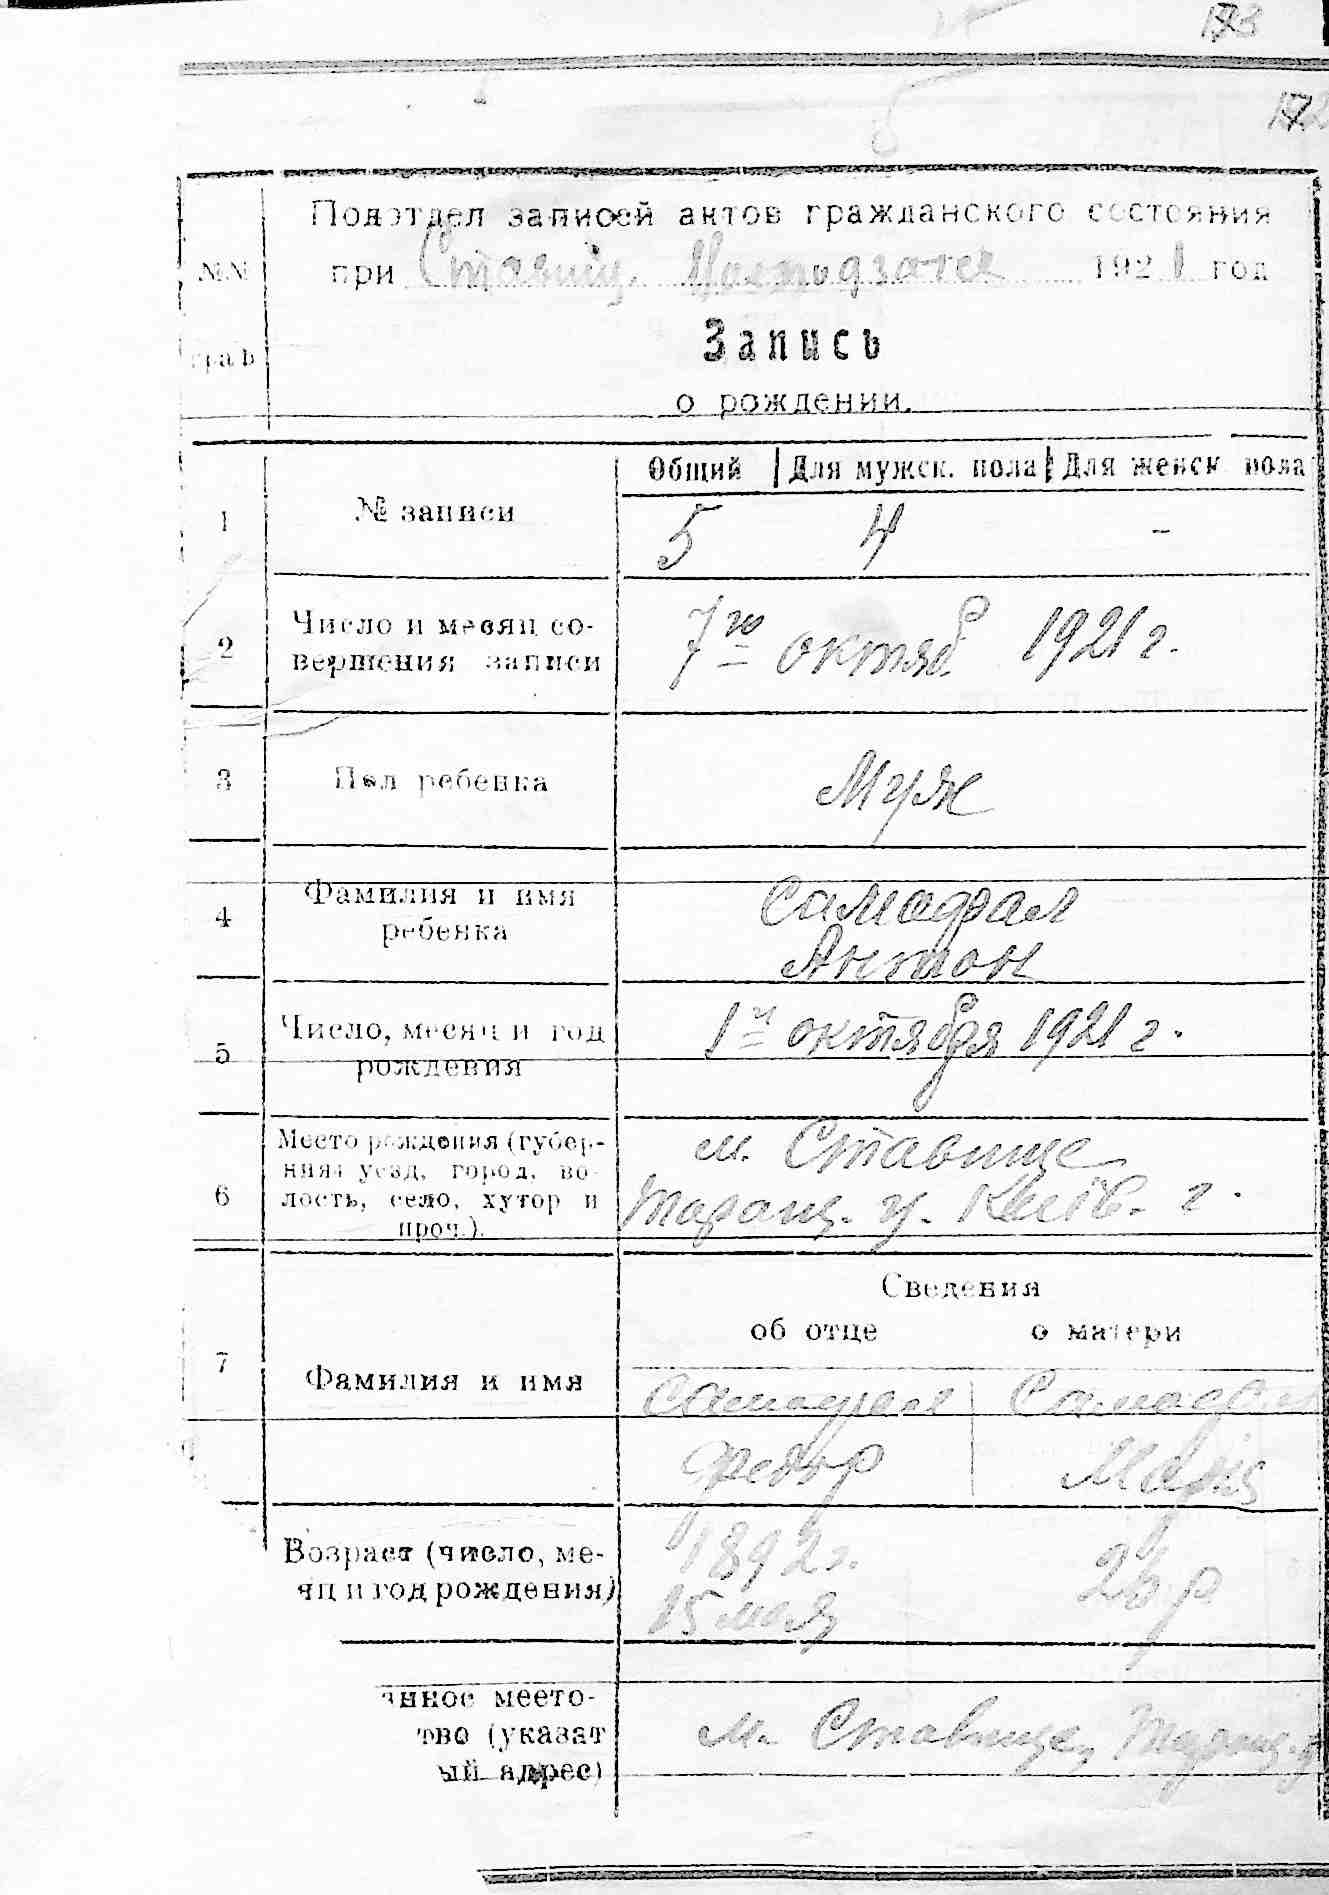 Подотдел записей актов гражданского состояния
№№ при Ставищ. 1921 год
граф
Запись
о рождении.
Общий Для мужск. пола Для женск пола
1 № записи 5 4 -
2 Число и месяц со-
вершения записи 7го октяб 1921 г.
3 Пол ребенка Муж
4 Фамилия и имя
ребенка
Антон
5 Число, месяц и год
рождения 1го октября 1921 г.
6 Место рождения (губер-
ния, уезд, город, во-
лость, село, хутор и
проч.).
м. Ставище
Таращ. у. Киев. г.
Сведения
об отце о матери
7 Фамилия и имя
Федор
Возраст (число, ме-
яц и год рождения)
1892 г.
15 мая
26 р
янное место-
тво (указат
ый адрес)
м. Ставище, Таращ. у